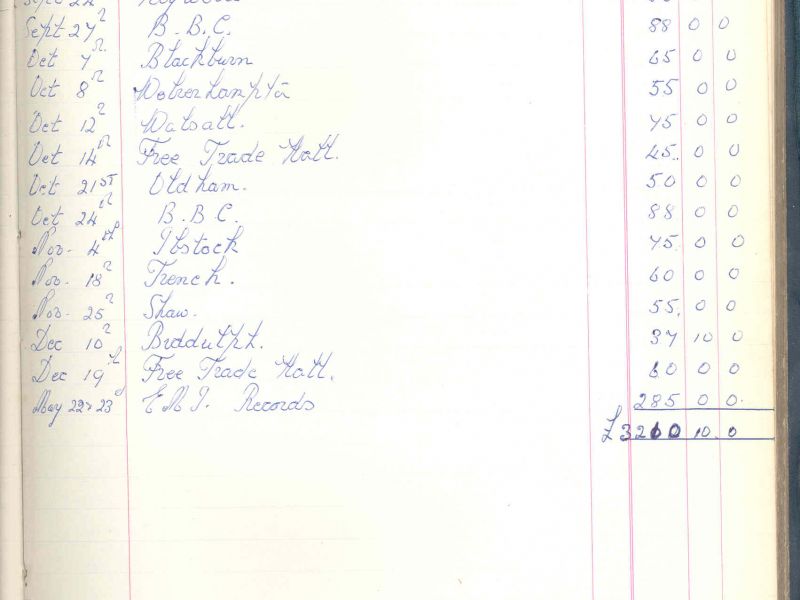 Sept 27th B.B.C. 88 0 0
Oct 7th Blackburn 65 0 0
Oct 8th Wolverhampton 55 0 0
Oct 12th Walsall. 75 0 0
Oct 14th Free Trade Hall. 45. 0 0
Oct 21ST Oldham. 50 0 0
Oct 24th B.B.C. 88 0 0
Nov. 4th Ibstock 75. 0 0
Nov. 18th Trench. 60 0 0
Nov. 25th Shaw. 55. 0 0
Dec 10th Biddulph. 37 10 0
Dec 19th Free Trade Hall. 60 0 0
May 22 & 23rd E.M.I. Records 285 0 0.
£3260 10. 0